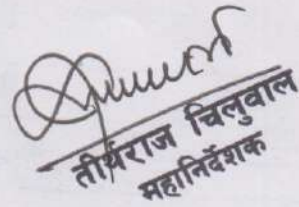 तीर्थराज चिलुवाल
महानिर्देशक